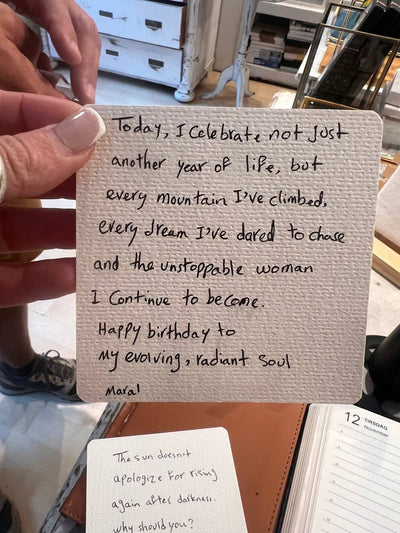 Today, I celebrate not just
another year of life, but
every mountain I've climbed,
every dream I've dared to chase
and the unstoppable woman
I continue to become.
Happy birthday to
my evolving, radiant soul
Maral
The sun doesnot
apologize for rising
again after darkness.
why should you?
12 TIRSDAG
November